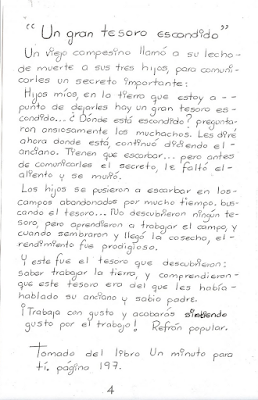 "Un gran tesoro escondido"
Un viejo campesino llamó a su lecho-
de muerte a sus tres hijos, para comuni-
carles un secreto importante:
Hijos míos, en la tierra que estoy a --
punto de dejarles hay un gran tesoro es-
condido... ¿Dónde está escondido? pregunta-
ron ansiosamente los muchachos. Les diré
ahora donde está, continuó diciendo el-
anciano. Tienen que escarbar... pero antes
de comunicarles el secreto, le faltó el-
aliento y se murió.
Los hijos se pusieron a escarbar en los-
campos abandonados por mucho tiempo, bus-
cando el tesoro... No descubrieron ningún te-
soro, pero aprendieron a trabajar el campo, y
cuando sembraron y llegó la cosecha, el-
rendimiento fue prodigioso.
Y este fue el tesoro que descubrieron:
saber trabajar la tierra, y comprendieron-
que este tesoro era del que les había-
hablado su anciano y sabio padre.
¡Trabaja con gusto y acabarás sintiendo
gusto por el trabajo! Refrán popular.
Tomado del libro Un minuto para
tí. página 197.
4